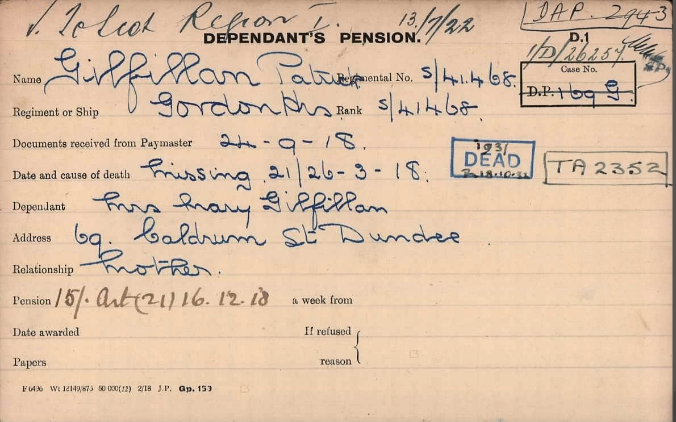 √. To Scot Region I. 13/7/22 DAP. 2943
DEPENDANT'S PENSION. D.1
1/D/26257
Name Gilfillan Patrick Regimental No. S/41468. Case No.
D.P. 169 G.
Regiment or Ship Gordon Hrs Rank S/41468.
Documents received from Paymaster 24-9-18.
Date and cause of death Missing 21/26-3-18. 1931 DEAD TA 2352
Dependant Mrs Mary Gilfillan
Address 69. Caldrum St Dundee
Relationship Mother.
Pension 15/- Art (21) 16.12.18 a week from
Date awarded If refused
Papers reason
F 6496 Wt 12149/875 80 000(12) 2/18 J.P. Gp. 153